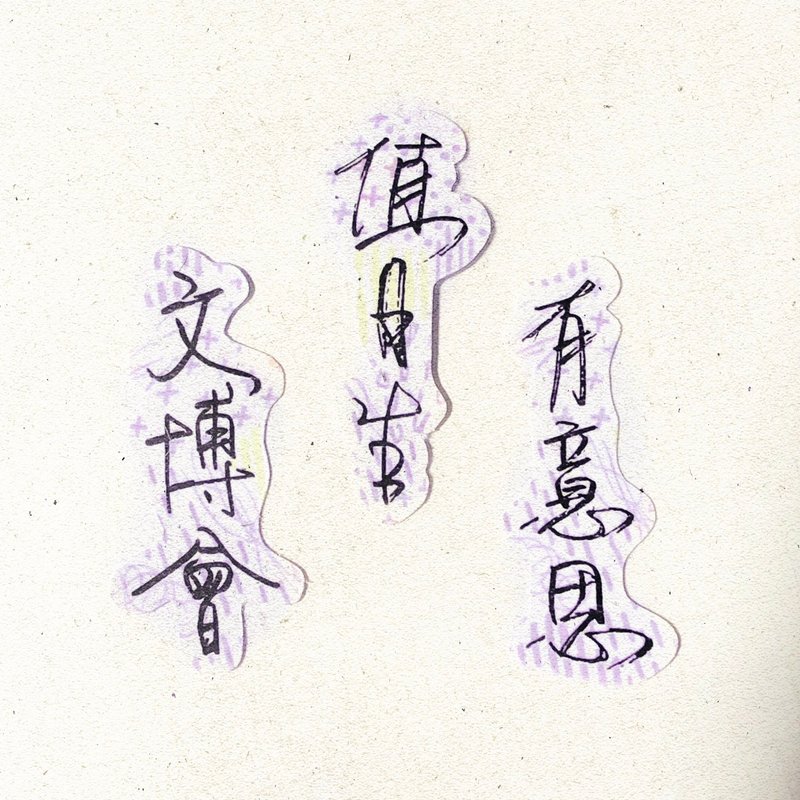 有意思
值日生
文博會